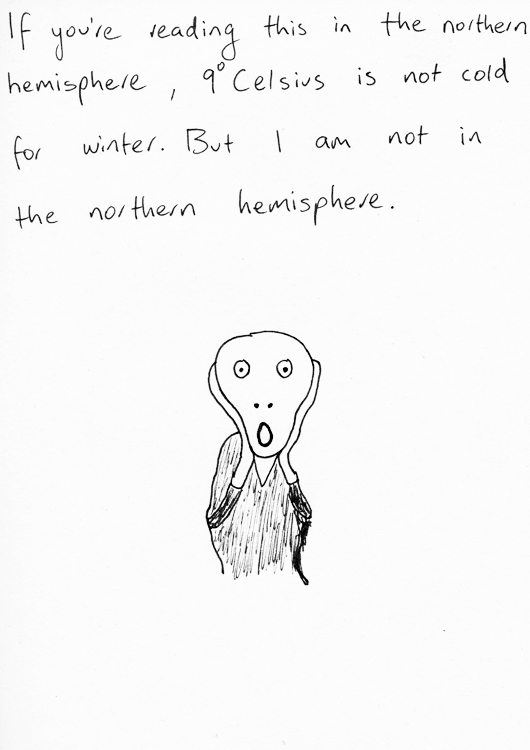 If you're reading this in the northern
hemisphere, 9° Celsius is not cold
for winter. But I am not in
the northern hemisphere.